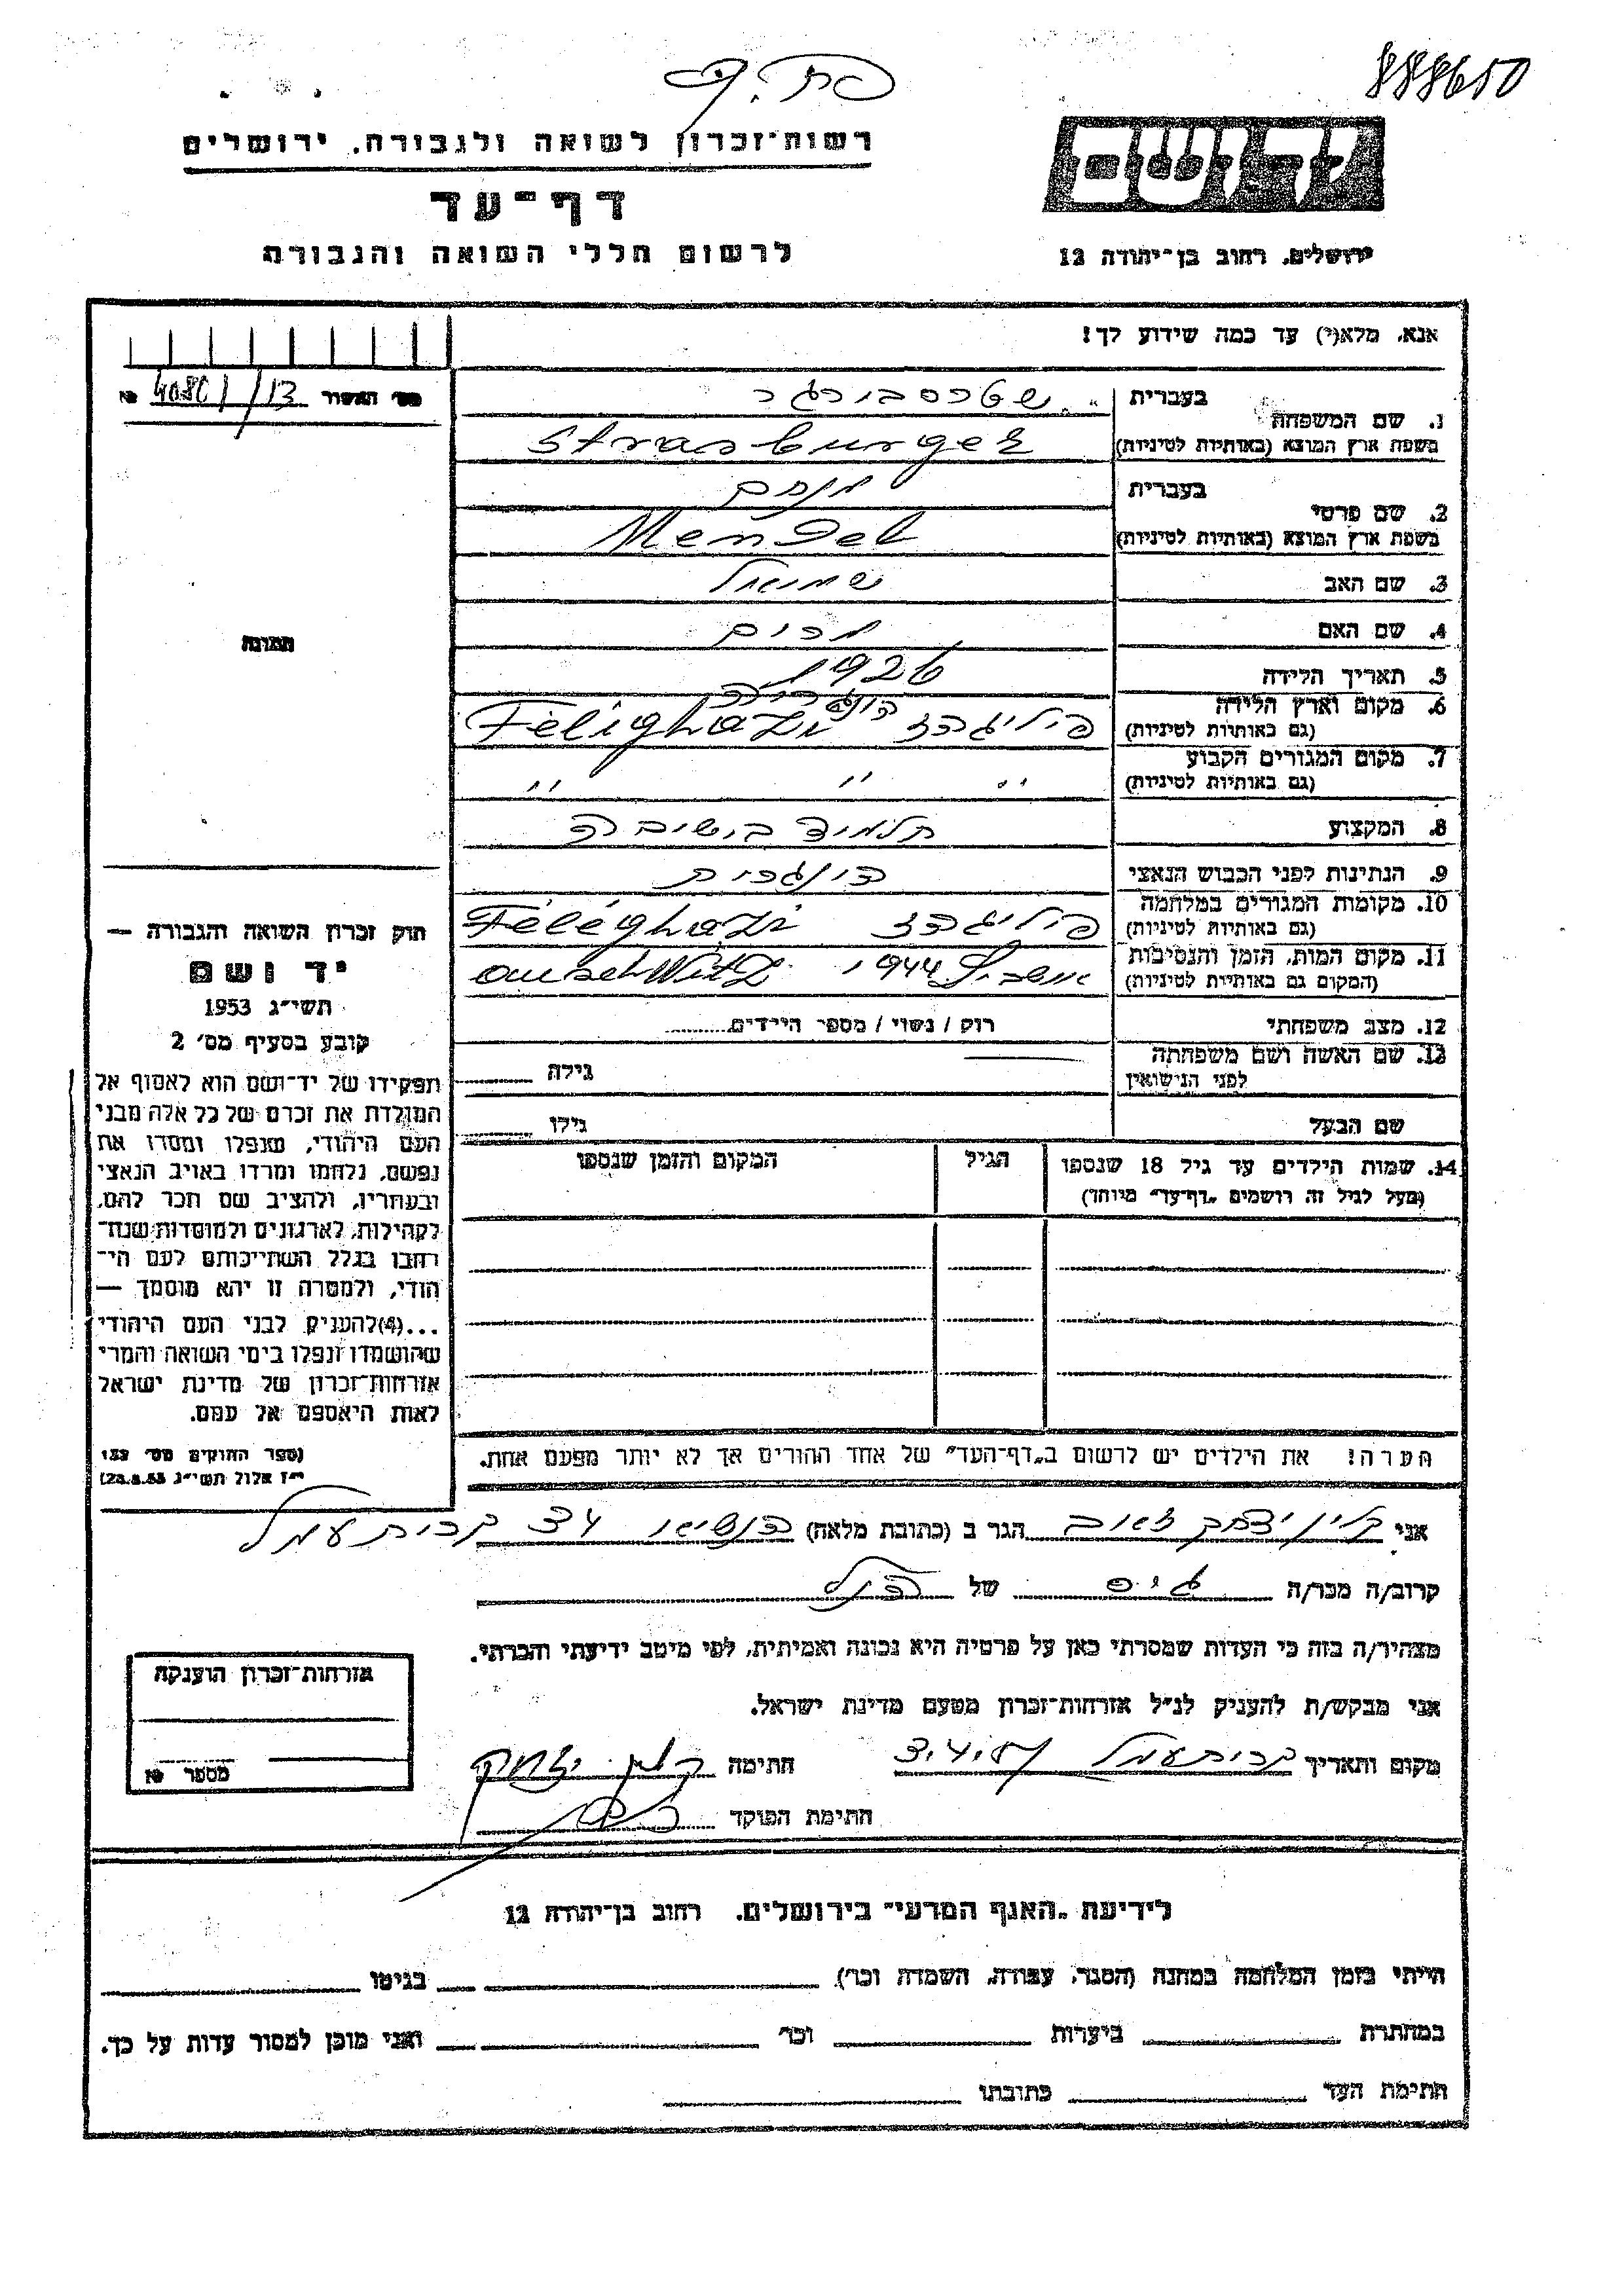 888650
רשות־זכרון לשואה ולגבורה, ירושלים
דף־עד
לרשום חללי השואה והגבורה
יד ושם
ירושלים, רחוב בן־יהודה 12
אנא, מלא(י) עד כמה שידוע לך!
מס' האשור 13 / 4080 №
תמונה
1. שם המשפחה בעברית שטרסבורגר
בשפת ארץ המוצא (באותיות לטיניות) Strasburger
2. שם פרטי בעברית מנחם
בשפת ארץ המוצא (באותיות לטיניות) Mendel
3. שם האב שמואל
4. שם האם מרים
5. תאריך הלידה 1926
6. מקום וארץ הלידה הונגריה
(גם באותיות לטיניות) פיליגהזי Féligházi
7. מקום המגורים הקבוע
(גם באותיות לטיניות) " " "
8. המקצוע תלמיד בישיבה
9. הנתינות לפני הכבוש הנאצי הונגרית
10. מקומות המגורים במלחמה
(גם באותיות לטיניות) Féléghazi
11. מקום המות, הזמן והנסיבות
(המקום גם באותיות לטיניות) 1944 auschWitz
12. מצב משפחתי רוק / נשוי / מספר הילדים
13. שם האשה ושם משפחתה
לפני הנישואין גילה
שם הבעל גילו
14. שמות הילדים עד גיל 18 שנספו הגיל המקום והזמן שנספו
(מעל לגיל זה רושמים „דף־עד" מיוחד)
חוק זכרון השואה והגבורה —
יד ושם
תשי"ג 1953
קובע בסעיף מס' 2
תפקידו של יד־ושם הוא לאסוף אל
המולדת את זכרם של כל אלה מבני
העם היהודי, שנפלו ומסרו את
נפשם, נלחמו ומרדו באויב הנאצי
ובעוזריו, ולהציב שם וזכר להם,
לקהילות, לארגונים ולמוסדות שנח־
רבו בגלל השתייכותם לעם הי־
הודי, ולמטרה זו יהא מוסמך —
...(4) להעניק לבני העם היהודי
שהושמדו ונפלו בימי השואה והמרי
אזרחות־זכרון של מדינת ישראל
לאות היאספם אל עמם.
(ספר החוקים מס' 132
י"ז אלול תשי"ג 28.8.53)
הערה! את הילדים יש לרשום ב„דף־העד" של אחד ההורים אך לא יותר מפעם אחת.
אני קליין יצחק זאב הגר ב (כתובת מלאה) הנשיא 43 קרית עמל
קרוב/ה מכר/ה גיס של הנ"ל
מצהיר/ה בזה כי העדות שמסרתי כאן על פרטיה היא נכונה ואמיתית, לפי מיטב ידיעתי והכרתי.
אני מבקש/ת להעניק לנ"ל אזרחות־זכרון מטעם מדינת ישראל.
מקום ותאריך קרית עמל חתימה קליין יצחק
חתימת הפוקד
אזרחות־זכרון הוענקה
מספר №
לידיעת „האגף המדעי" בירושלים, רחוב בן־יהודה 12
הייתי בזמן המלחמה במחנה (הסגר, עבודה, השמדה וכו') בגיטו
במחתרת ביערות וכו' ואני מוכן למסור עדות על כך.
חתימת העד כתובתו